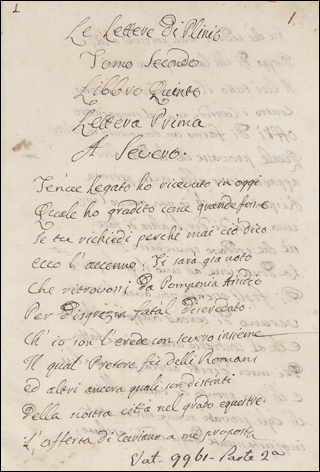 1
1
Le Lettere Di Plinio
Tomo Secondo
Libbro Quinto
Lettera Prima
A Severo.
Tenue Legato ho ricevuto in oggi
Quale ho gradito come grande
Se tu richiedi perchè mai ciò dico
ecco l'accenno; Ti sarà già noto
Che ritrovossi Da Pomponia
Per disgrazia fatal diseredato.
Ch' io son l'erede con severo insieme
Il qual Pretore fei delli Romani
ed altri ancora quali son distinti
Della nostra città nel grado equestre.
L'offerta di Curiano a me proposta
Vat. 9961 - Parte 2a